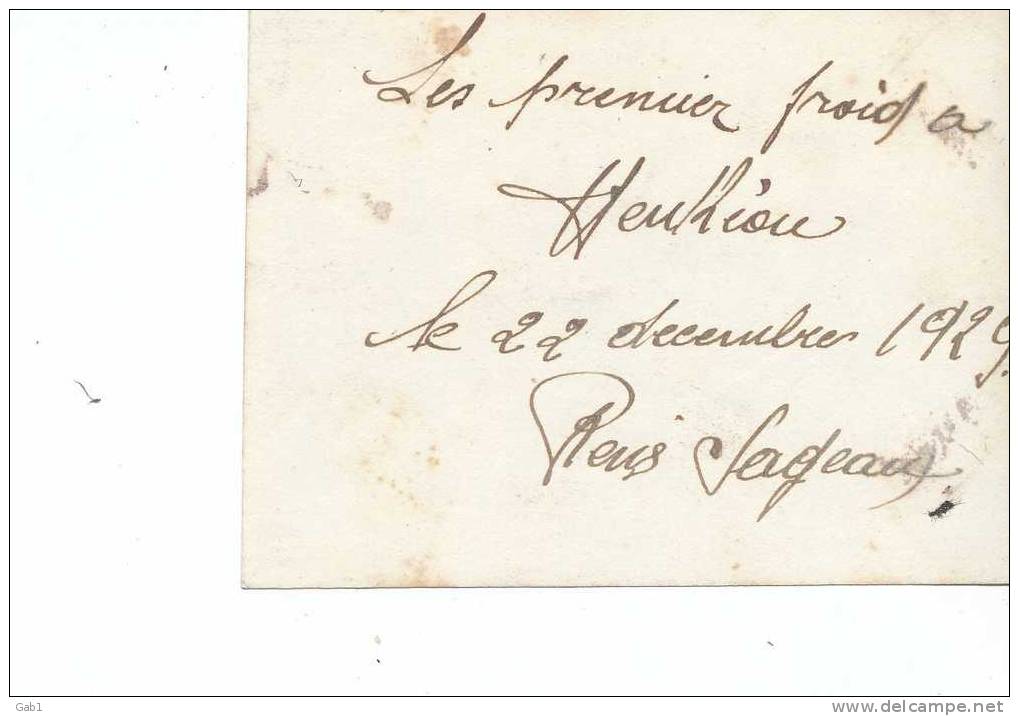 Les premier froid a
le 22 decembre 1929
René Sageau
Gab1
www.delcampe.net